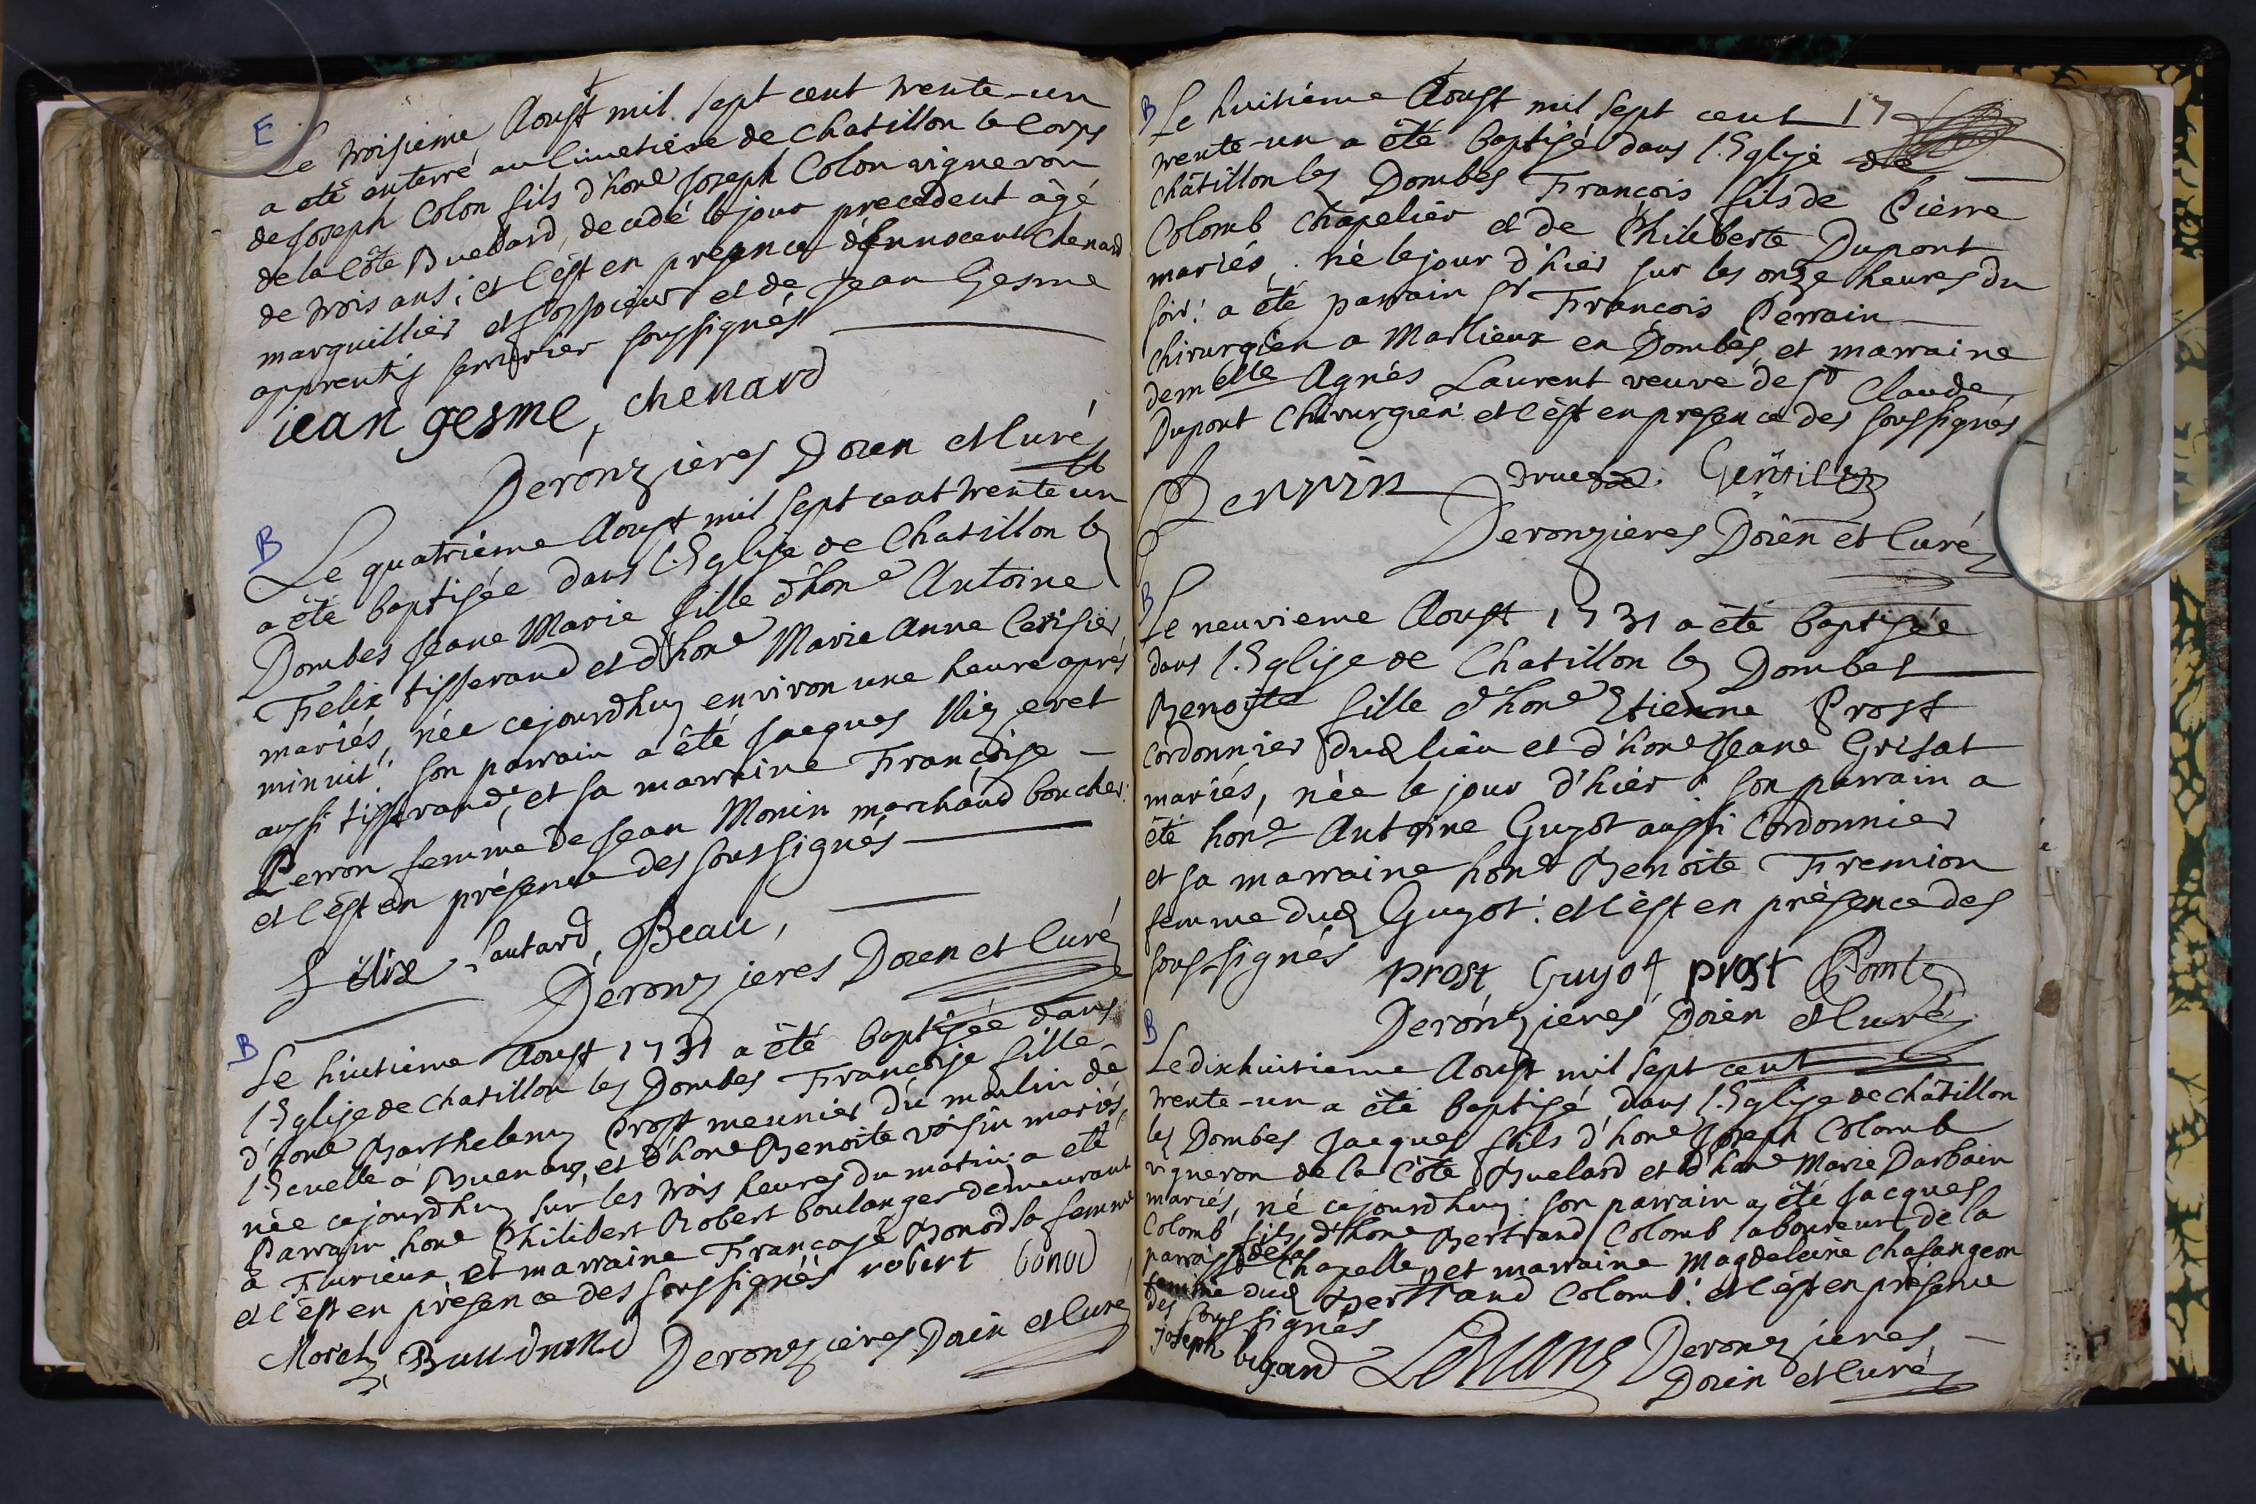 E
Le troisieme Aoust mil sept cent trente-un
a eté enterré au Cimetiere de Chatillon le Corps
de Joseph Colon fils d'hone Joseph Colon vigneron
de la Côte Buellard, decedé le jour precedent âgé
de trois ans; et c'est en presence d'Innocent Chenard
marguillier et fossoieur et de Jean Gesme
apprentis serrurier soussignés
jean gesme, chenard
Deronzieres Doien et Curé
B
Le quatrième Aoust mil sept cent trente un
a été baptisée dans l'Eglise de Chatillon les
Dombes Jeane Marie fille d'hone Antoine
Felix tisserand et d'hone Marie Anne Cerisier
mariés, née cejourdhuy environ une heure aprés
minuit: son parrain a été Jacques
aussi tisserand, et sa marraine Françoise
Perron femme de Jean Monin marchand boucher:
et c'est en présence des soussignés
Félix Lautard, Beau,
Deronzieres Doien et Curé
B
Le huitieme Aoust 1731 a été baptisée dans
l'Eglise de Chatillon les Dombes Françoise fille
d'hone Barthelemy Prost meunier du moulin de
à Buenans, et d'hone Benoite voisin mariés,
née cejourdhuy sur les trois heures du matin; a eté
Parrain hone Philibert Robert boulanger demeurant
a Flurieux, et marraine Françoise Bonod sa femme
et c'est en présence des soussignés robert bonod
Morel, Deronzieres Doien et Curé
B
Le huitiéme Aoust mil sept cent 17
trente-un a été baptisé dans l'Eglise de
châtillon les Dombes François fils de Pierre
Colomb Chapelier et de Philiberte Dupont
mariés, né le jour d'hier sur les onze heures du
soir: a été parrain Sr François Perrain
chirurgien a Marlieux en Dombes, et marraine
demelle Agnés Laurent veuve de Sr Claude
Dupont Chirurgien: et c'est en presence des soussignés
Perrin Gentil
Deronzieres Doien et Curé
B
Le neuvieme Aoust 1731 a été baptisée
dans l'Eglise de Chatillon les Dombes
Benoite fille d'hone Etienne Prost
cordonnier dud lieu et d'hone Jeane Grisat
mariés, née le jour d'hier: son parrain a
été hone Antoine Guyot aussi Cordonnier
et sa marraine hone Benoite Fremion
femme dud Guyot: et c'est en présence des
soussignés prost Guyot prost Comte
Deronzieres Doien et Curé
B
Le dixhuitieme Aoust mil sept cent
trente-un a été baptisé dans l'Eglise de châtillon
les Dombes Jacques fils d'hone Joseph Colomb
vigneron de la Côte Buelard et d'hone Marie Darbain
mariés, né cejourdhuy: son parrain a été Jacques
Colomb fils d'hone Bertrand Colomb laboureur de la
parroisse de la Chapelle, et marraine Magdeleine Chasangeon
femme dud Bertrand Colomb: et c'est en présence
des soussignés
Joseph bigand Deronzieres
Doien et Curé